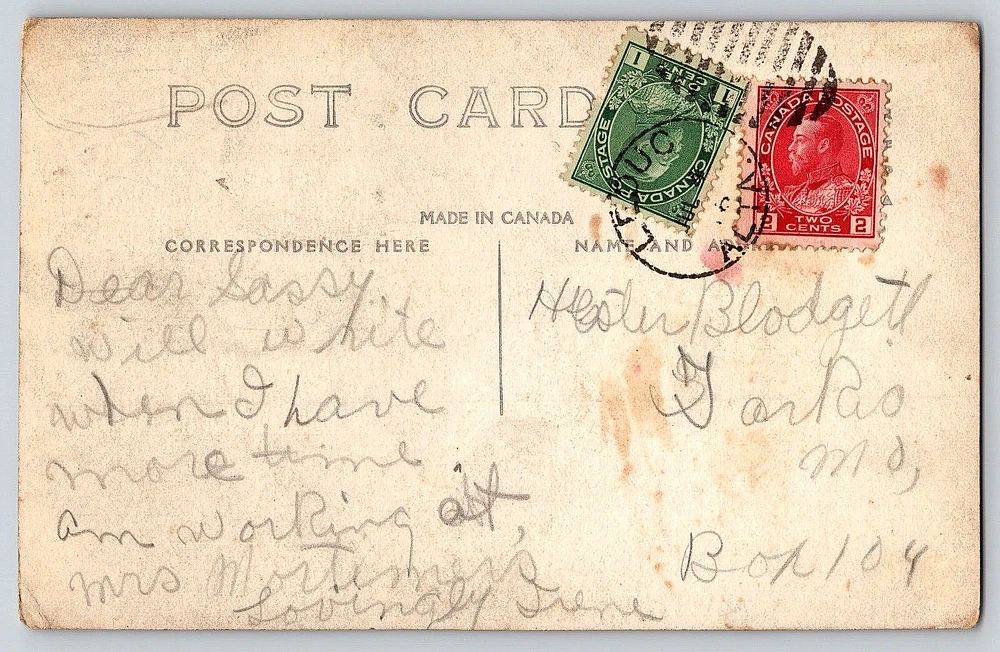 POST CARD
MADE IN CANADA
CORRESPONDENCE HERE
NAME AND
1 CENT 1
CANADA POSTAGE
CANADA POSTAGE
2 TWO CENTS 2
ALTA
Dear Sassy,
will white
when I have
more time
am working at,
mrs Mortimers
Lovingly Irene
Hester Blodgett
Tarkio
Mo,
Box 104